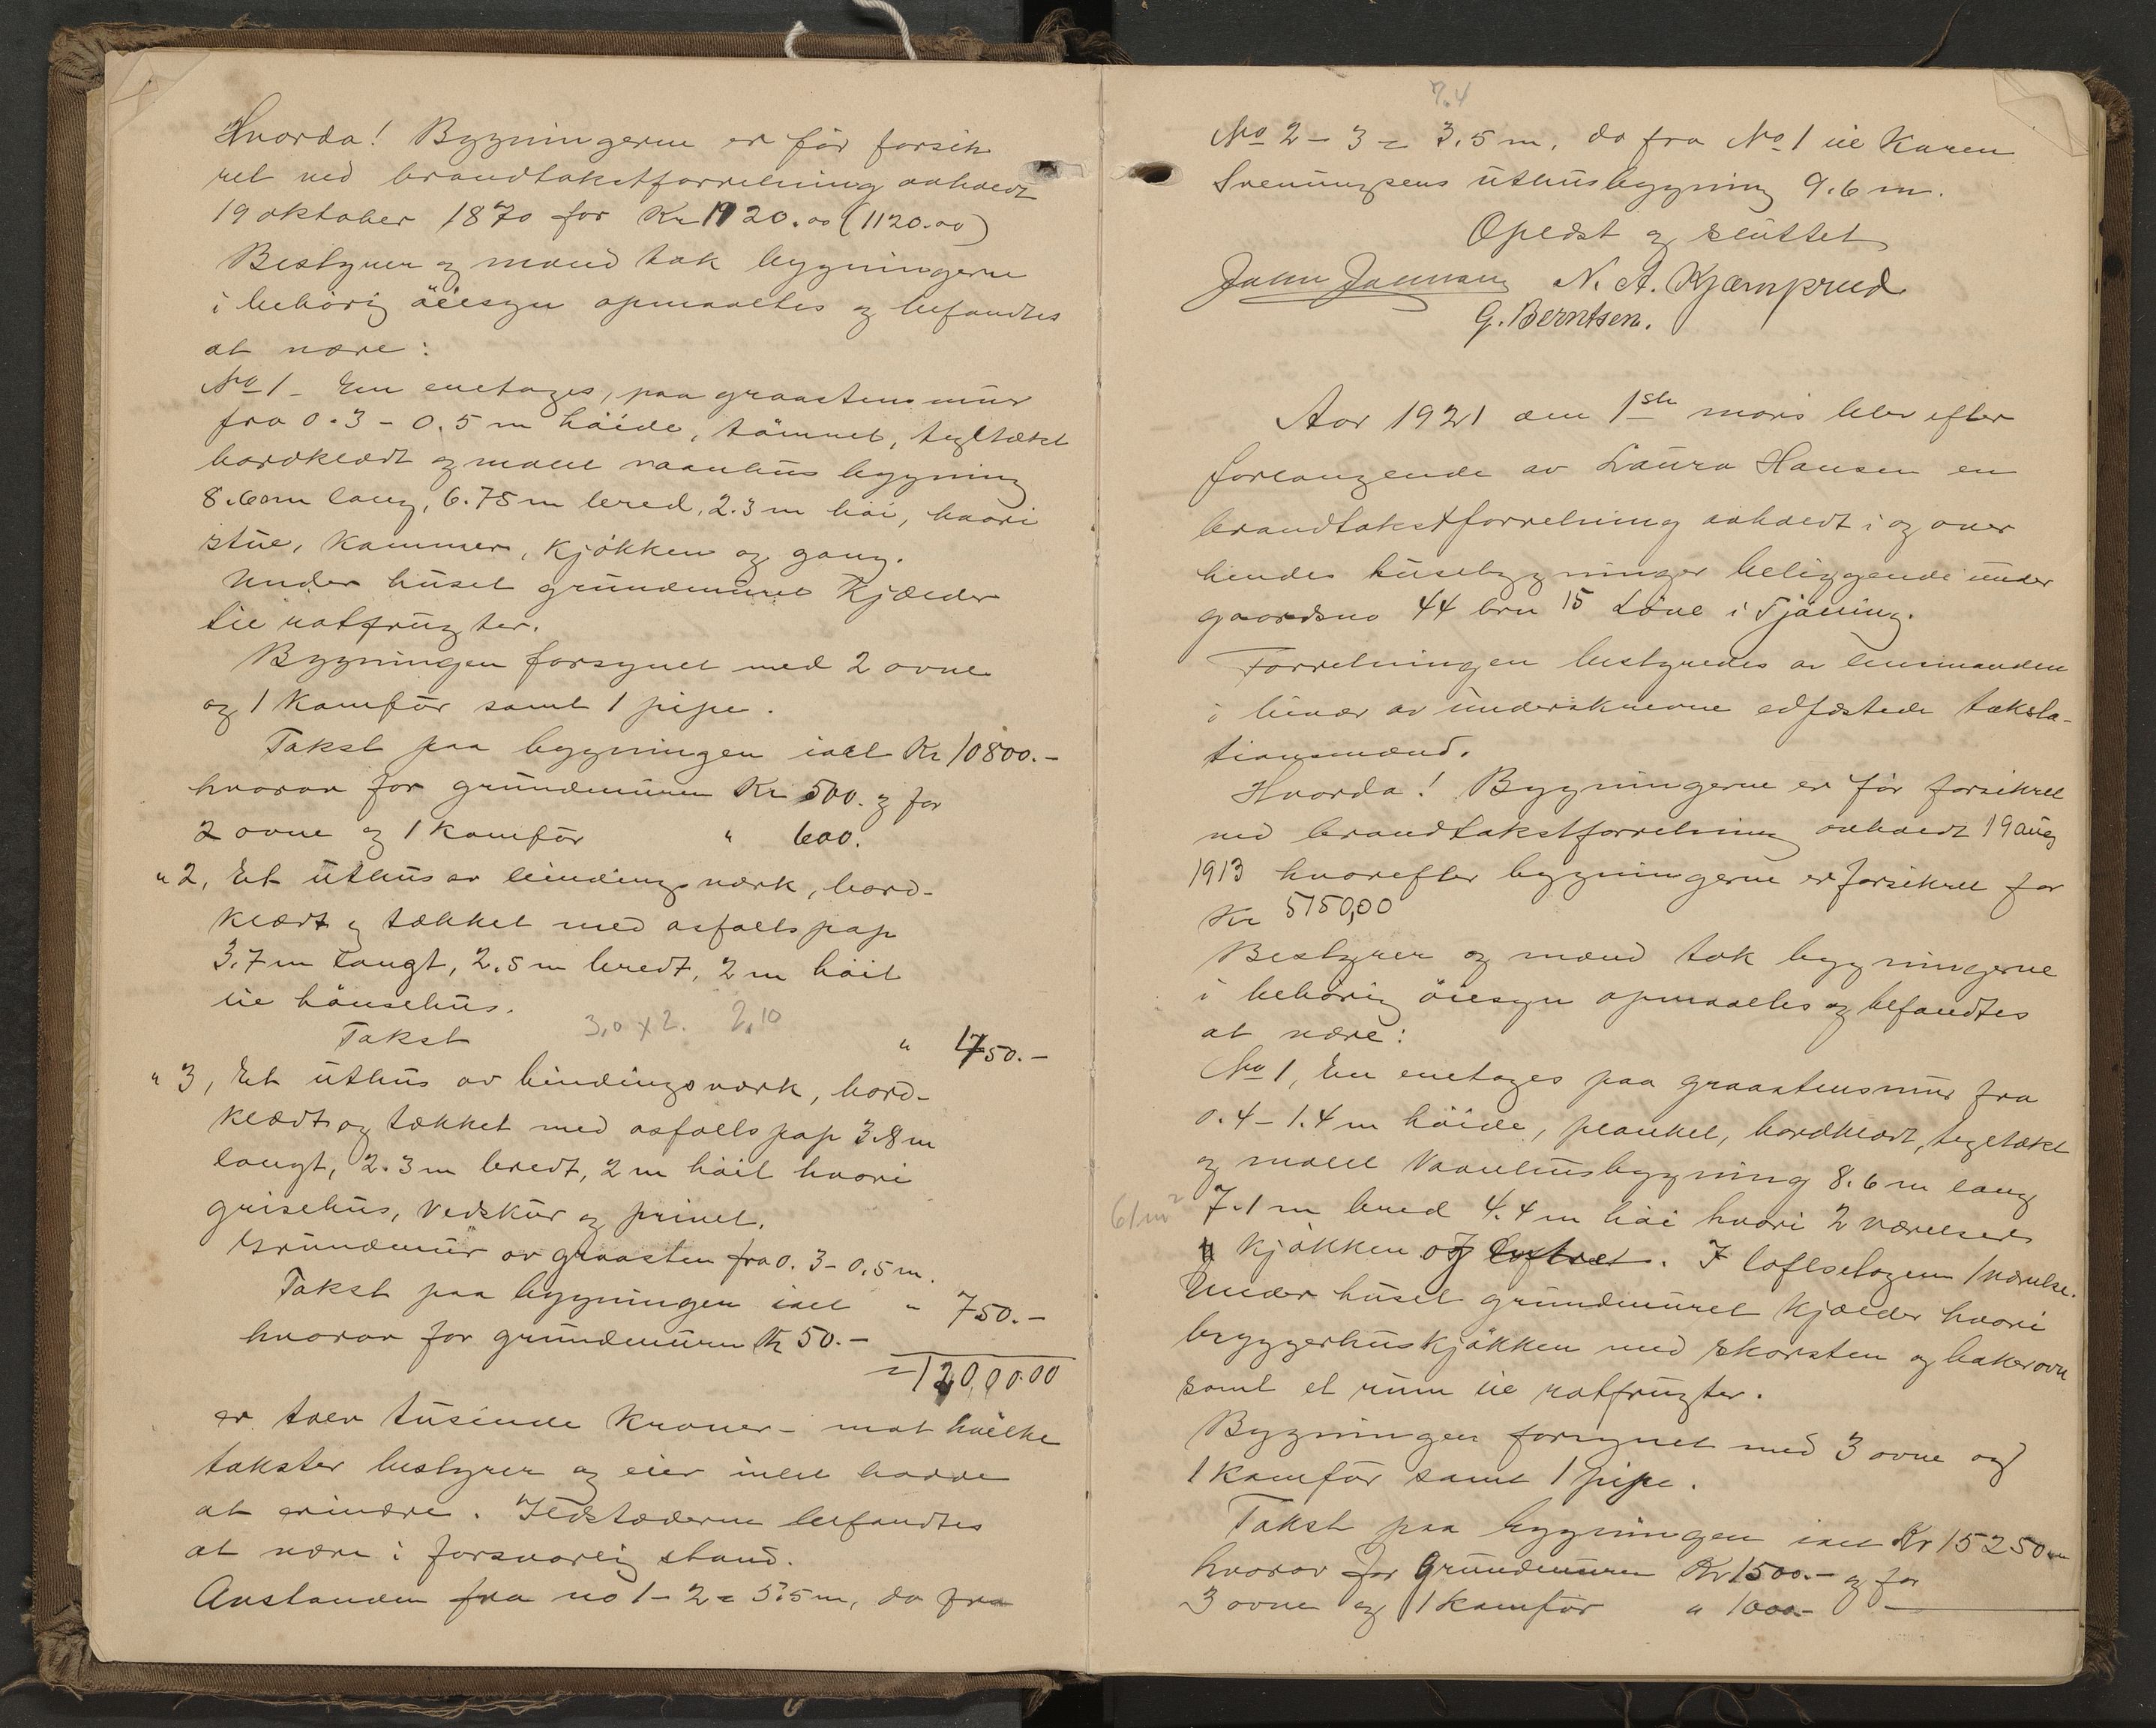 Hvorda! Bygningerne er før forsik
ret ved brandtakstforretning avholdt
19 oktober 1870 for Kr 1120.00 (1120.00)
Bestyrer og mænd tok bygningerne
i behörig öiesyn opmaaltes og befandtes
at være:
No 1 - En enetages, paa graastensmur
fra 0.3 - 0.5 m höide, tömret, tegltækt
bordklædt og malt vaanhus bygning
8.60m lang, 6.75 m bred, 2.3 m höi, hvori
stue, kammer, kjökken og gang.
Under huset grundmuret kjælder
til rotfrugter.
Bygningen forsynet med 2 ovne
og 1 komfür samt 1 pipe.
Takst paa bygningen ialt Kr 10800.-
hvorav for grundmuren Kr 500. og for
2 ovne og 1 komfür " 600.
" 2, Et uthus av bindingsværk, bord-
klædt og tækket med asfaltspap
3.7 m langt, 2.5 m bredt, 2 m höit
til hönsehus.
3,0 x 2. 2,10
Takst " 450.-
" 3, Et uthus av bindingsværk, bord-
klædt og tækket med asfaltspap 3.8 m
langt, 2.3 m bredt, 2 m höit hvori
grisehus, vedskur og privet.
Grundmur av graasten fra 0.3 - 0.5 m.
Takst paa bygningen ialt " 750.-
hvorav for grundmuren Kr 50.-
= 12000.00
er tolv tusinde kroner - mot hvilke
takster bestyrer og eier intet hadde
at erindre. Ildstæderne befandtes
at være i forsvarlig stand.
Avstanden fra no 1 - 2 = 5.5 m, do fra
7.4
No 2 - 3 = 3.5 m, do fra No 1 til Karen
Sveningsens uthusbygning 9.6 m.
Oplæst og sluttet
John Johnsen N. A. Kjæmprud
G. Berntsen.
Aar 1921 den 1ste mars blev efter
forlangende av Laura Hansen en
brandtakstforretning avholdt i og over
hendes husebygninger beliggende under
gaardsno 44 brn 15 Löve i Tjölling.
Forretningen bestyredes av lensmanden
i hvær av underskrevne edfæstede taksta-
tionsmænd.
Hvorda! Bygningerne er før forsikret
ved brandtakstforretning avholdt 19 aug
1913 hvorefter bygningerne er forsikret for
Kr 5150,00
Bestyrer og mænd tok bygningerne
i behörig öiesyn opmaaltes og befandtes
at være:
No 1, En enetages paa graastensmur fra
0.4 - 1.4 m höide, planket, bordklædt, tegltækt
og malt Vaanhusbygning 8.6 m lang
61 m²
7.1 m bred 4.4 m höi hvori 2 værelser
kjökken og . I loftsetagen 1 værelse.
Under huset grundmuret kjælder hvori
bryggerhuskjökken med skorsten og bakerovn
samt et rum til rotfrugter.
Bygningen forsynet med 3 ovne og
1 komfür samt 1 pipe.
Takst paa bygningen ialt Kr 15250.-
hvorav for Grundmuren Kr 1500.- og for
3 ovne og 1 komfür " 1000.-